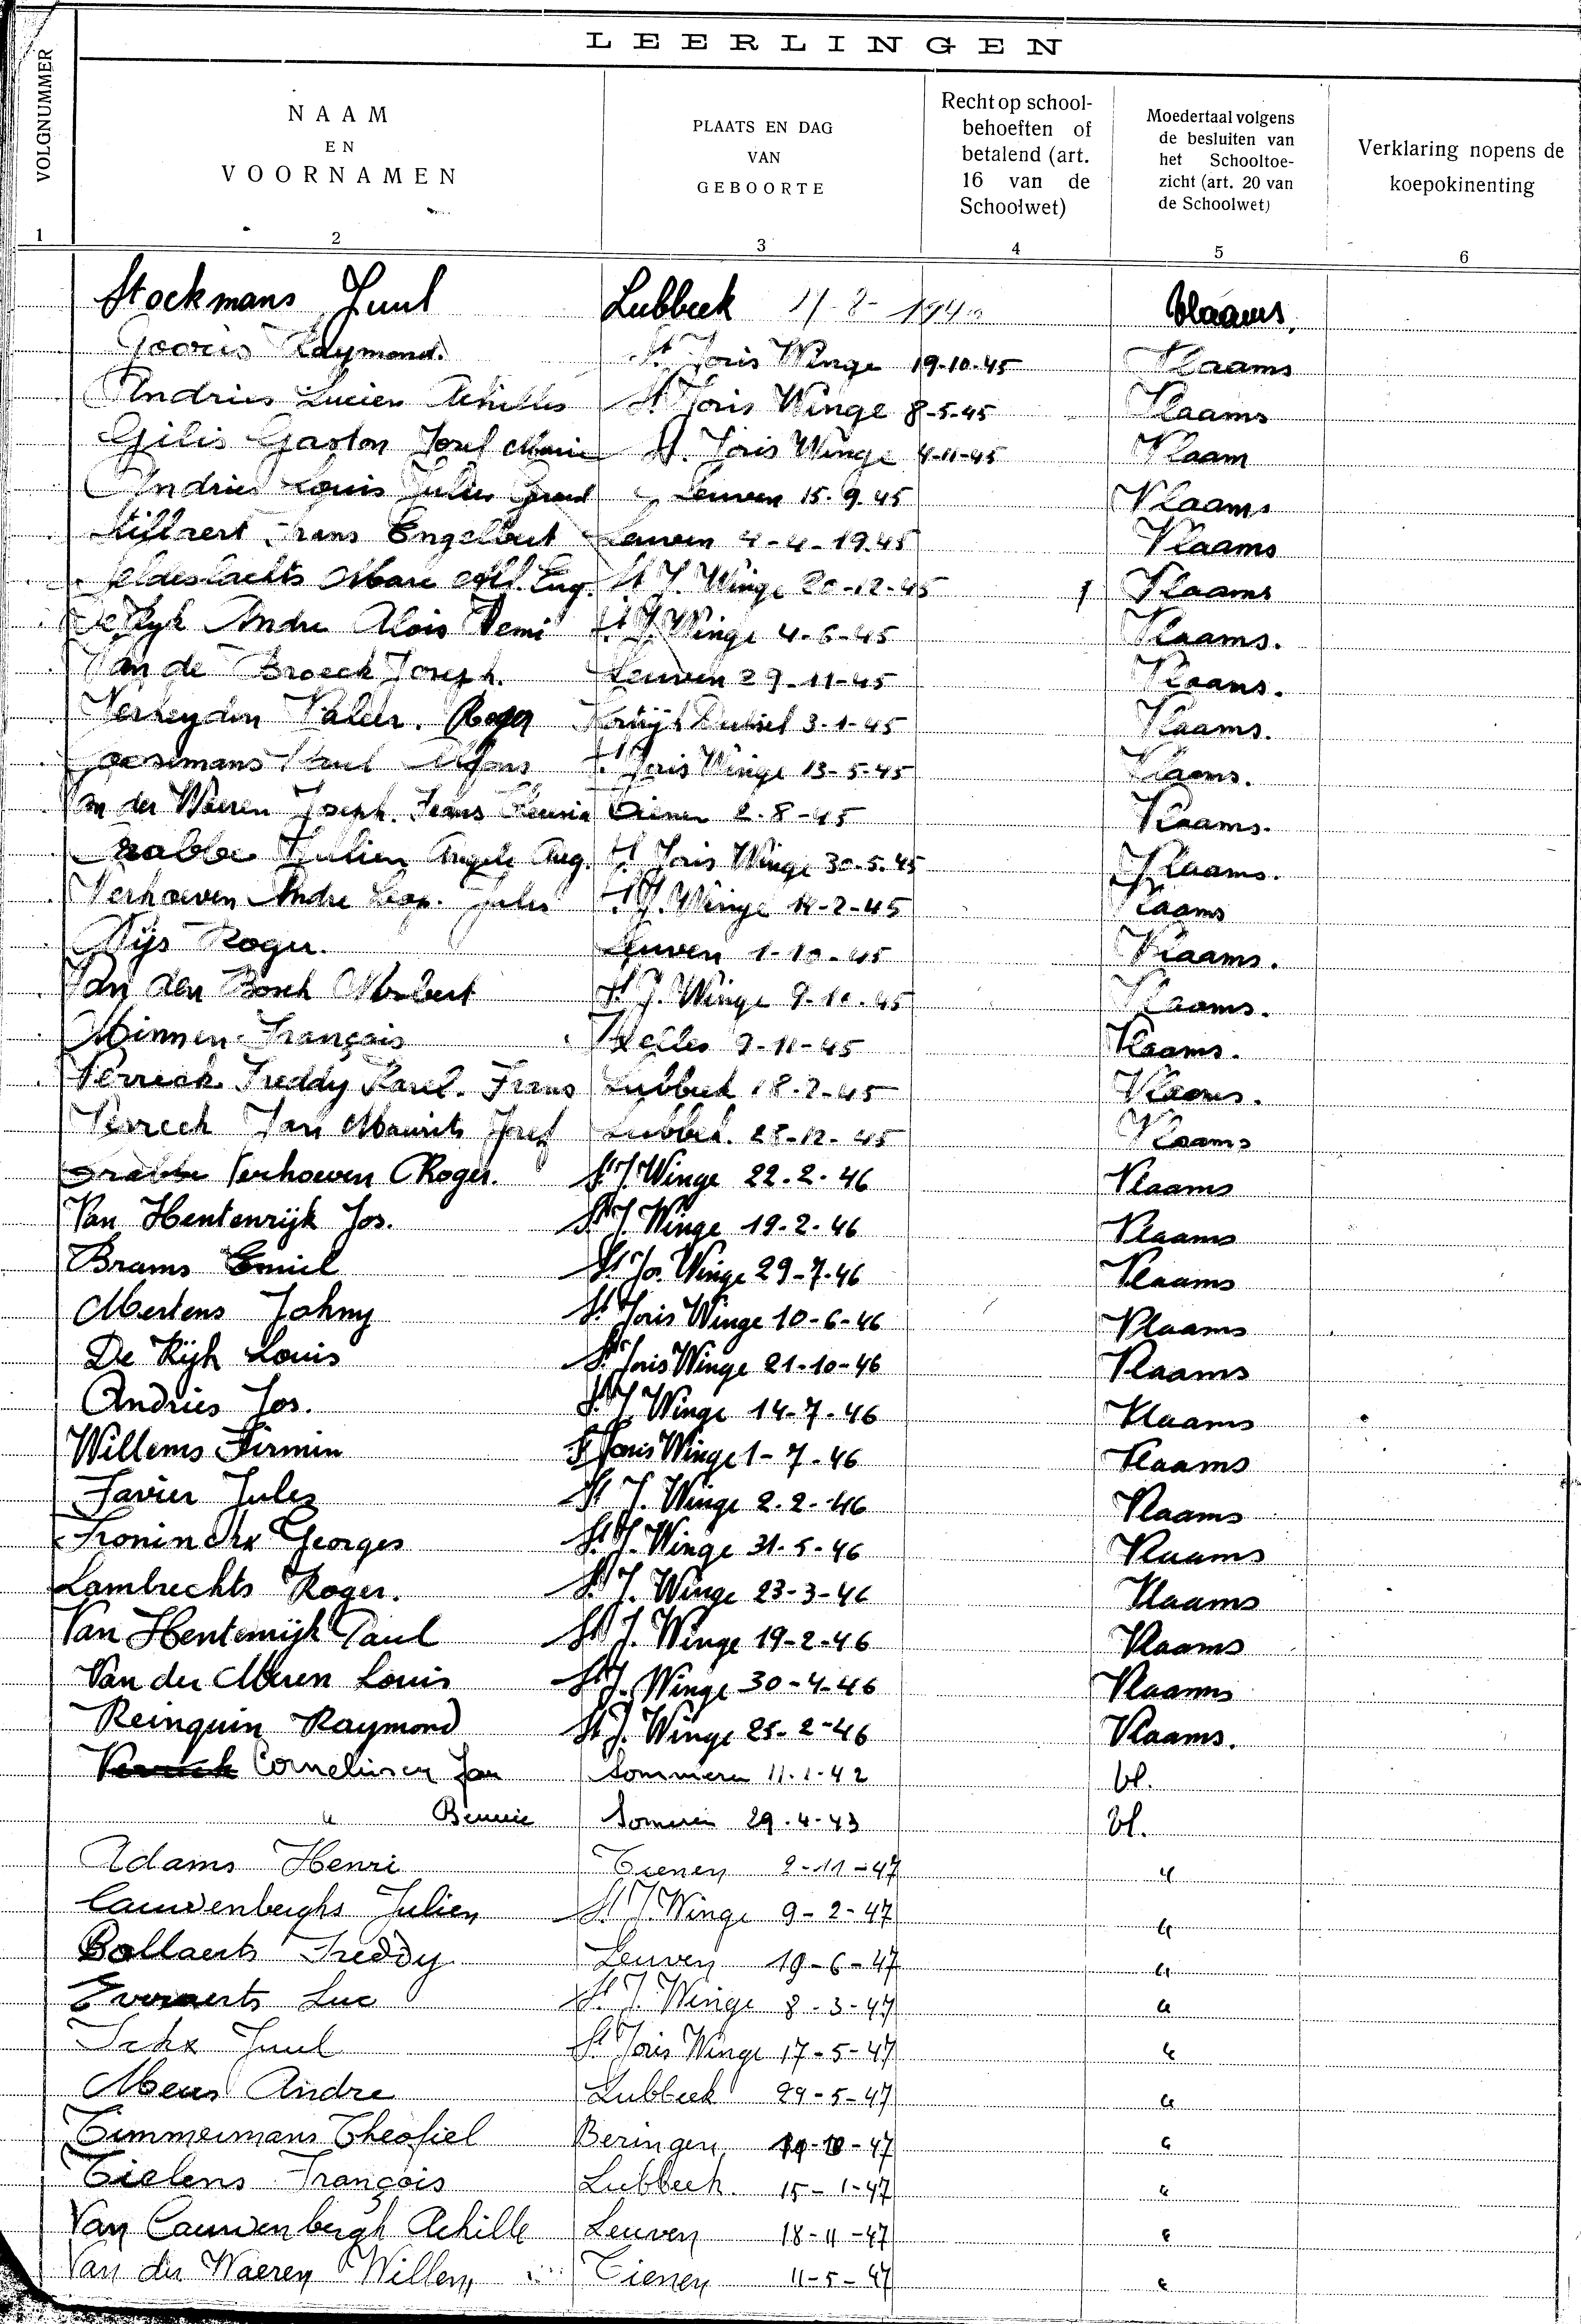 LEERLINGEN
VOLGNUMMER
NAAM
EN
VOORNAMEN
PLAATS EN DAG
VAN
GEBOORTE
Recht op school-
behoeften of
betalend (art.
16 van de
Schoolwet)
Moedertaal volgens
de besluiten van
het Schooltoe-
zicht (art. 20 van
de Schoolwet)
Verklaring nopens de
koepokinenting
1 2 3 4 5 6
Stockmans Juul Lubbeek 11-8- Vlaams.
Gooris Raymond. St Joris Winge 19-10-45 Vlaams
Andries Lucien Achilles St Joris Winge 8-5-45 Vlaams
Gilis Gaston Josef Marie St. Joris Winge 4-11-45 Vlaam
Andries Louis Jules Leuven 15.9.45 Vlaams
Frans Engelbert Leuven 4-4-1945 Vlaams
Marc Alf. Eug. St J. Winge 20-12-45 Vlaams
De Rijk Andre Alois Remi St J. Winge 4-6-45 Vlaams.
Van de Broeck Joseph. Leuven 29-11-45 Vlaams.
Verheyden Valeer. Roger 3-1-45 Vlaams.
Goosemans Paul Alfons St Joris Winge 13-5-45 Vlaams.
Van der Waeren Joseph. Frans Tienen 2.8-45 Vlaams.
Julien Angele Aug. St Joris Winge 30-5-45 Vlaams.
Verhoeven Andre Leop. Jules St J. Winge 14-2-45 Vlaams
Nijs Roger. Leuven 1-10-45 Vlaams.
Van den Bosch Norbert St J. Winge 9-10-45 Vlaams.
Minnen François Ixelles 9-11-45 Vlaams.
Verreck Freddy Karel. Frans Lubbeek 18-2-45 Vlaams.
Verreck Jan Maurits Josef Lubbeek. 28-12-45 Vlaams
Verhoeven Roger. St J. Winge 22.2.46 Vlaams
Van Hentenrijk Jos. St J. Winge 19-2-46 Vlaams
Brams Emiel St Jor. Winge 29-7-46 Vlaams
Mertens Johny St Joris Winge 10-6-46 Vlaams
De Rijk Louis St Joris Winge 21-10-46 Vlaams
Andries Jos. St J. Winge 14-7-46 Vlaams
Willems Firmin St Joris Winge 1-7-46 Vlaams
Favier Jules St J. Winge 2-2-46 Vlaams
Froninckx Georges St J. Winge 31-5-46 Vlaams
Lambrechts Roger. St J. Winge 23-3-46 Vlaams
Van Hentenrijk Paul St J. Winge 19-2-46 Vlaams
Van der Meren Louis St J. Winge 30-4-46 Vlaams
Reinquin Raymond St J. Winge 25-2-46 Vlaams.
Cornelissen Jan Sommeren 11-1-42 Vl.
" Bennie Someren 29.4-43 Vl.
Adams Henri Tienen 2-11-47 "
Cauwenberghs Julien St J. Winge 9-2-47 "
Bollaerts Freddy Leuven 19-6-47 "
Everaerts Luc St J. Winge 8-3-47 "
Ickx Juul St Joris Winge 17-5-47 "
Meus Andre Lubbeek 29-5-47 "
Timmermans Theofiel Beringen -47 "
Tielens François Lubbeek 15-1-47 "
Van Cauwenbergh Achille Leuven 18-11-47 "
Van der Waeren Willem Tienen 11-5-47 "